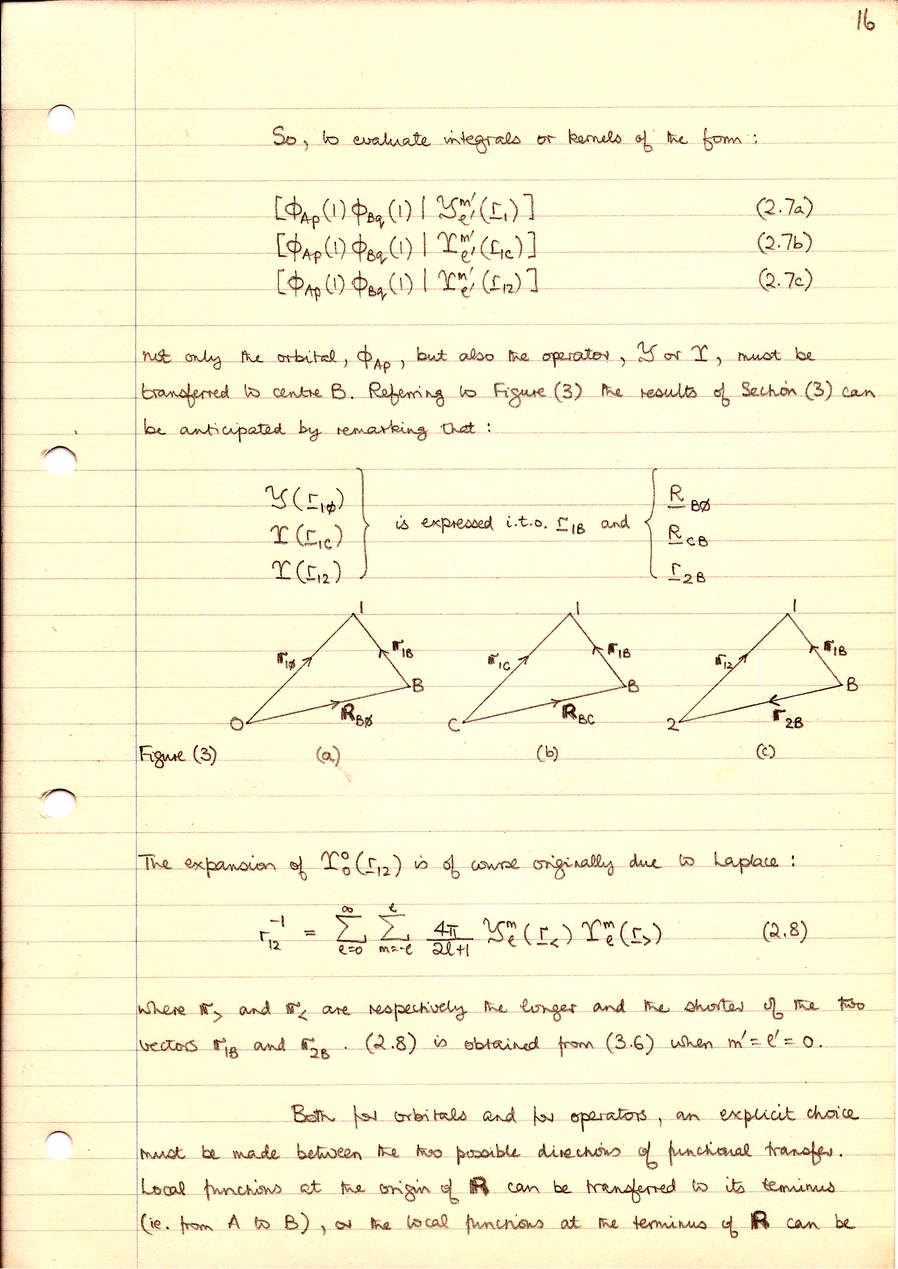 16
So, to evaluate integrals or kernels of the form :
[ϕ_Ap(1) ϕ_Bq(1) | 𝒴_ℓ'^m'(r_1)] (2.7a)
[ϕ_Ap(1) ϕ_Bq(1) | ϒ_ℓ'^m'(r_1C)] (2.7b)
[ϕ_Ap(1) ϕ_Bq(1) | ϒ_ℓ'^m'(r_12)] (2.7c)
not only the orbital, ϕ_Ap, but also the operator, 𝒴 or ϒ, must be
transferred to centre B. Referring to Figure (3) the results of Section (3) can
be anticipated by remarking that :
𝒴(r_1ø)
ϒ(r_1C) is expressed i.t.o. r_1B and
ϒ(r_12)
R_Bø
R_CB
r_2B
1 1 1
r_1ø r_1B r_1C r_1B r_12 r_1B
B B B
O R_Bø C R_BC 2 r_2B
Figure (3) (a) (b) (c)
The expansion of ϒ_0^0(r_12) is of course originally due to Laplace :
r_12^-1 = Σ_{ℓ=0}^∞ Σ_{m=-ℓ}^ℓ 4π/(2ℓ+1) 𝒴_ℓ^m(r_<) ϒ_ℓ^m(r_>) (2.8)
where r_> and r_< are respectively the longer and the shorter of the two
vectors r_1B and r_2B. (2.8) is obtained from (3.6) when m'=ℓ'=0.
Both for orbitals and for operators, an explicit choice
must be made between the two possible directions of functional transfer.
Local functions at the origin of R can be transferred to its terminus
(ie. from A to B), or the local functions at the terminus of R can be